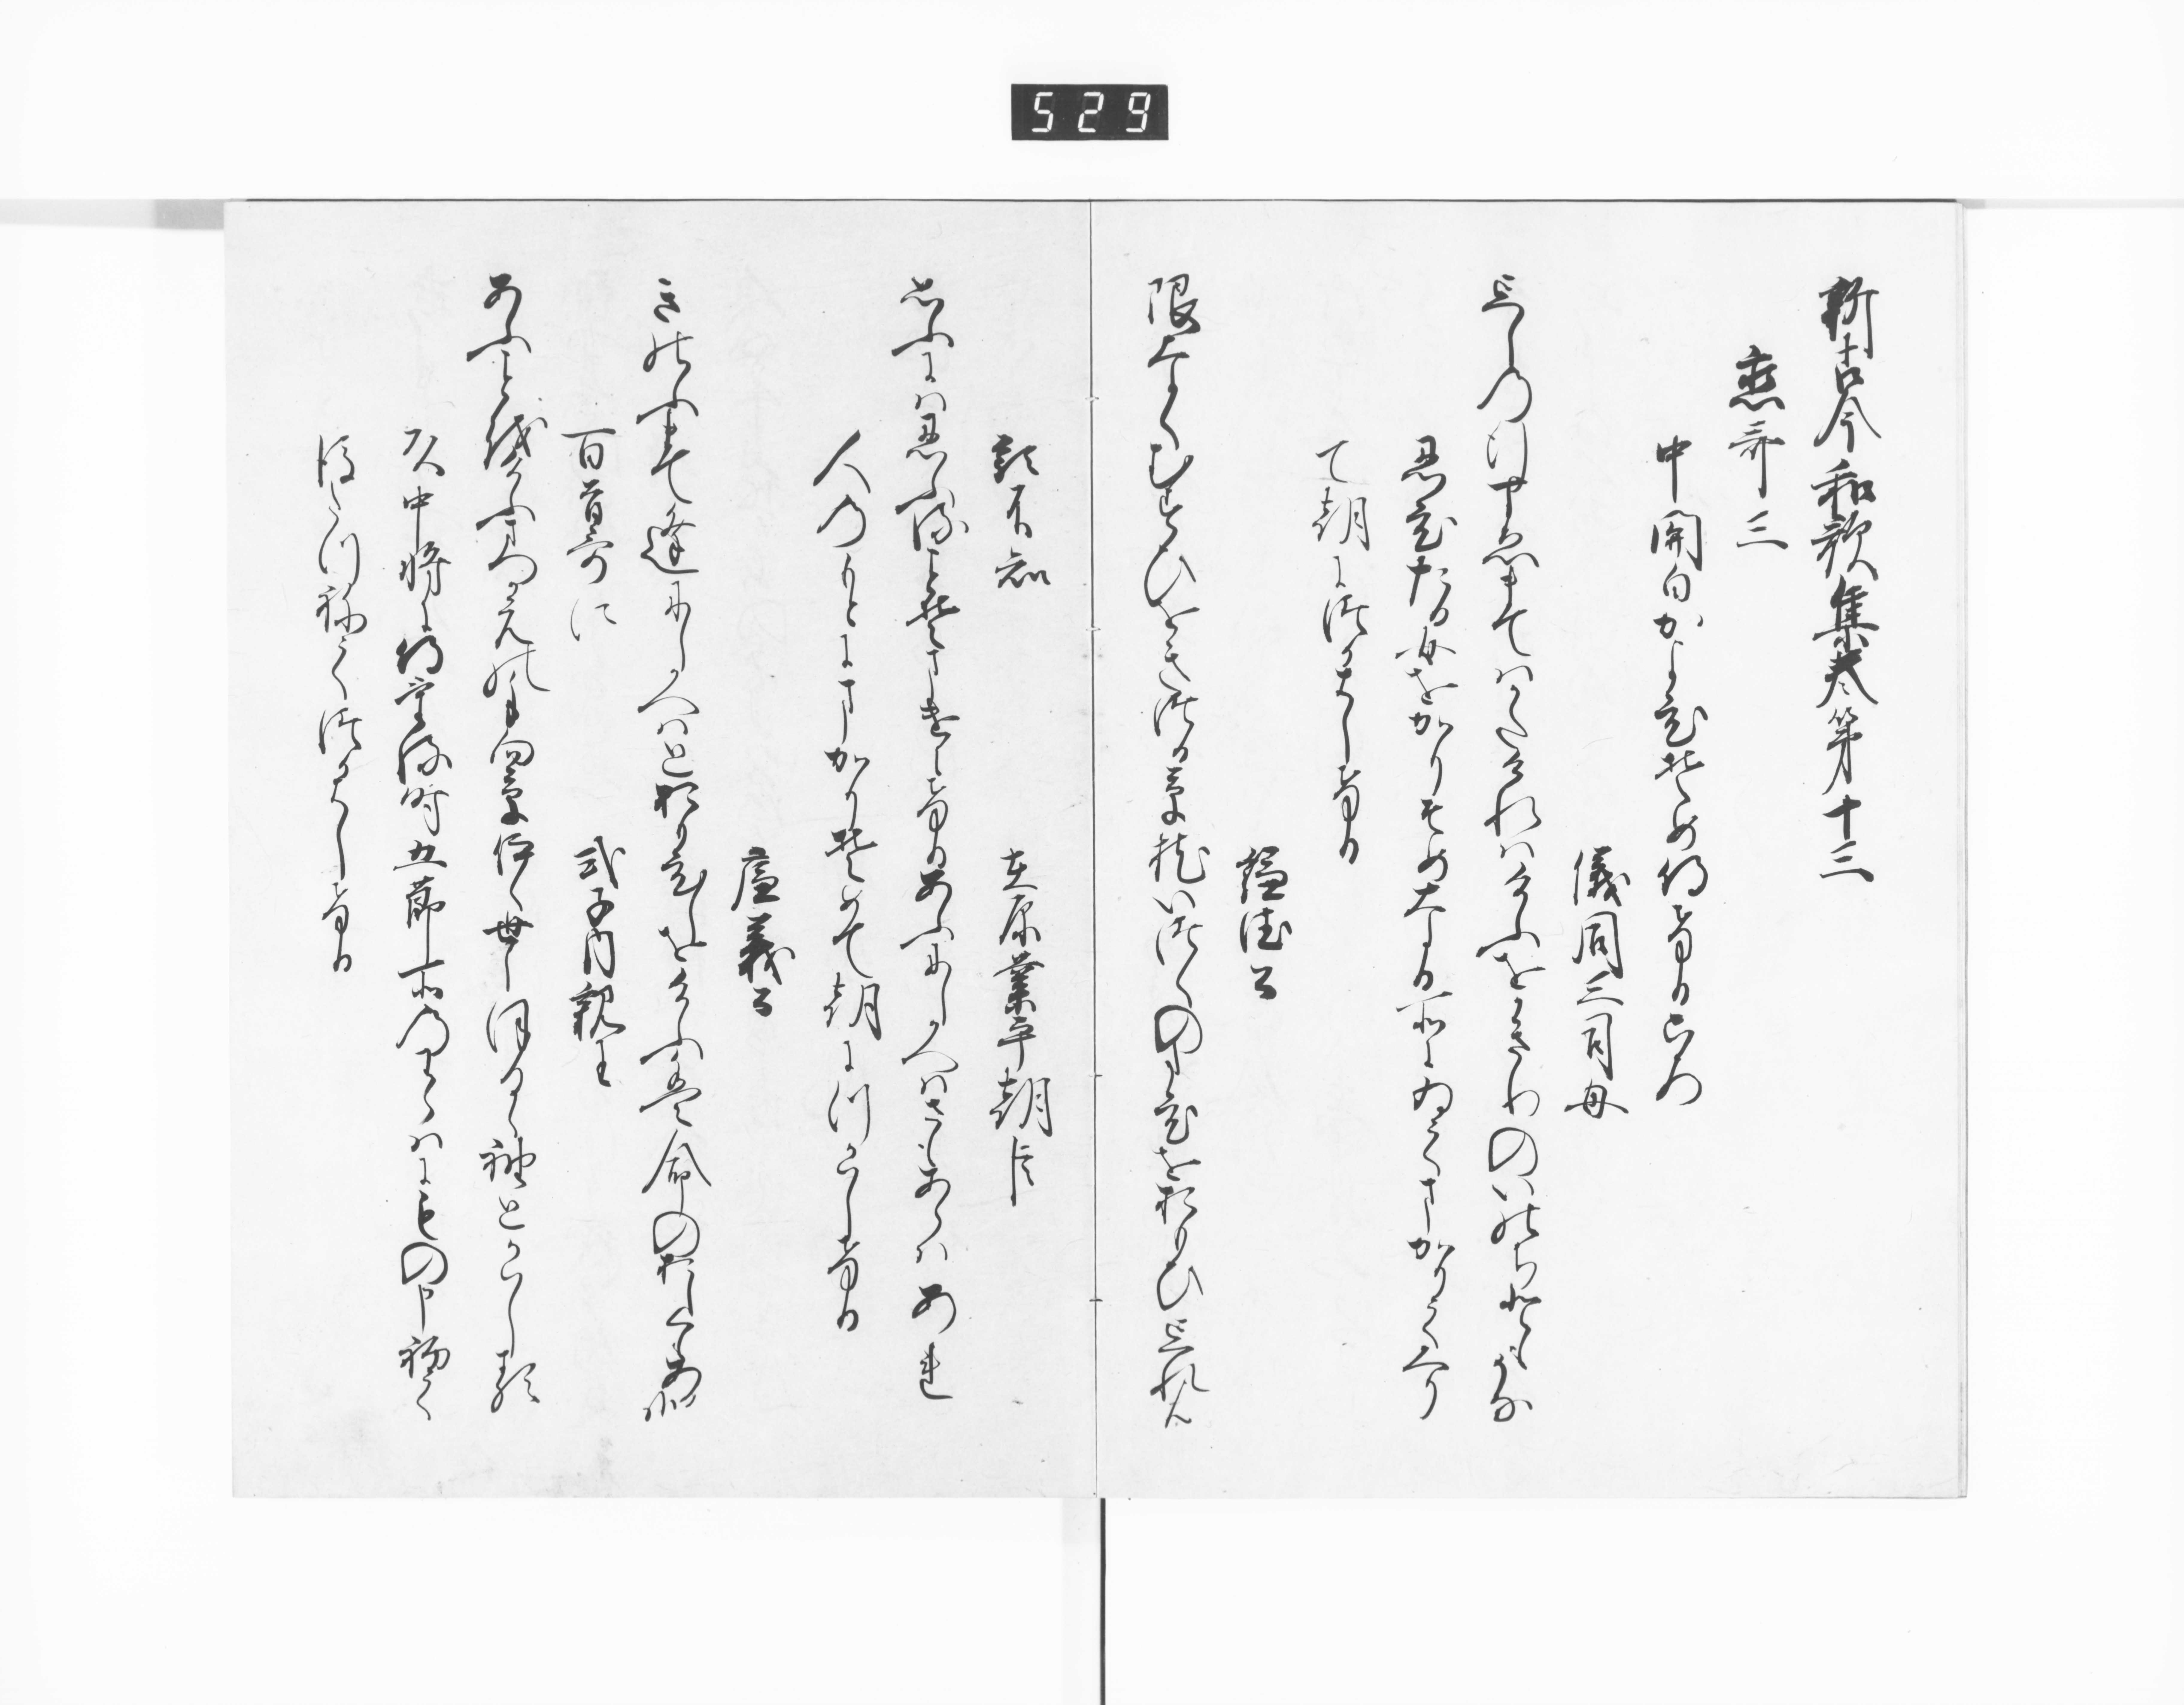 529
新古今和歌集巻第十三
恋哥三
中関白かよひそめ侍けるころ
儀同三司母
忘しの行すゑまてはかたけれはけふをかきりのいのちともかな
忍ひたる女をかりそめなる所にゐてまかりてかへり
て朝につかはしける
謙徳公
限なくむすひをきつる草枕いつくのたひをおもひ忘れん
題不知
在原業平朝臣
思ふには忍ふることそまけにけるあふにしかへはさもあらはあれ
人のもとにまかりそめて朝につかはしける
廉義公
きのふまて逢にしかへはとおもひしをけふは命のおしくもある哉
百首哥に
式子内親王
あふことをけふまつかえの手向草いくよしほるゝ袖とかはしる
頭中将に侍ける時五節所のわらはにもの申初て
後たつねてつかはしける